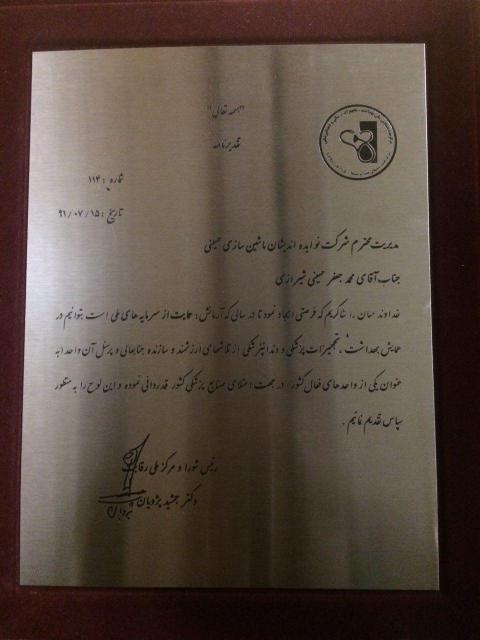 "بسمه تعالی"
تقدیرنامه
شماره : ۱۱۴
تاریخ : ۹۱/۰۷/۱۵
مدیریت محترم شرکت نوایده اندیشان ماشین سازی حسینی
جناب آقای محمد جعفر حسینی شیرازی
خداوند منان را شاکریم که فرصتی ایجاد نمود تا در سالی که آرمانش، حمایت از سرمایه های ملی است بتوانیم در
همایش بهداشت ، تجهیزات پزشکی و دندانپزشکی از تلاشهای ارزشمند و سازنده جنابعالی و پرسنل آن واحد (به
عنوان یکی از واحدهای فعال کشور) در جهت اعتلای صنایع پزشکی کشور قدردانی نموده و این لوح را به منظور
سپاس تقدیم نمائیم .
رئیس شورا و مرکز ملی رقابت
دکتر جمشید پژویان